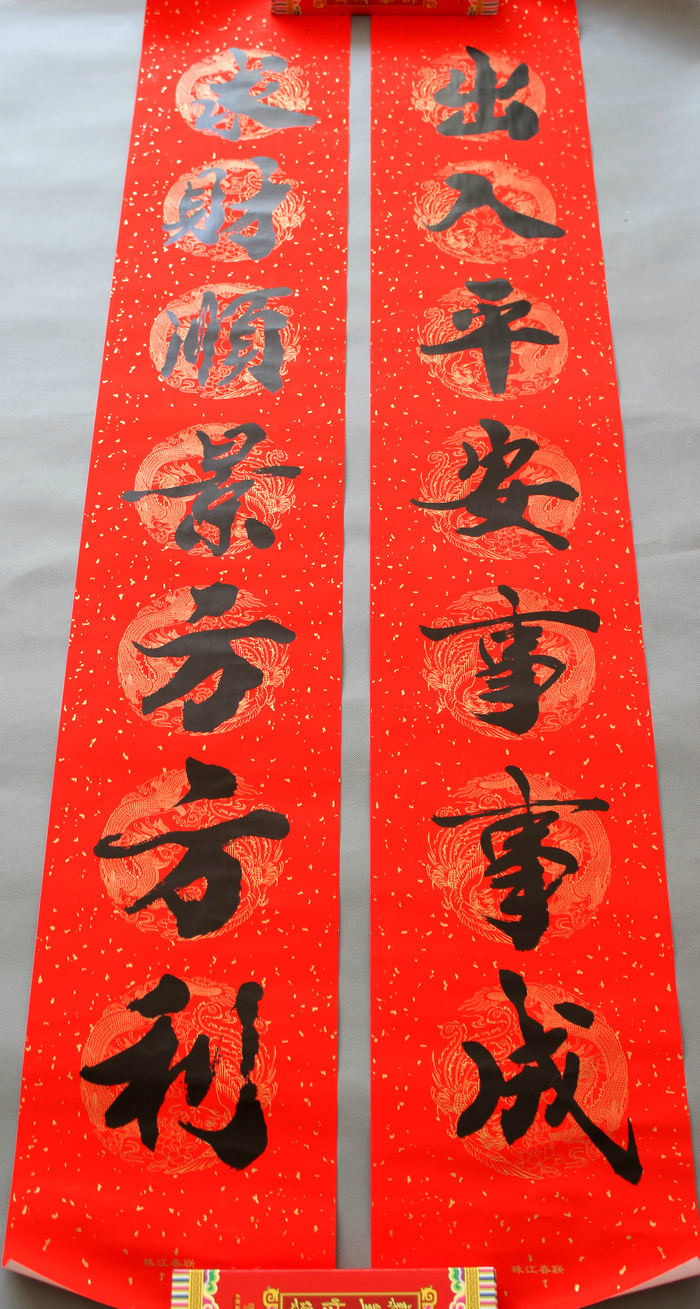 出入平安事事成
求財順景方方利
珠江春联
珠江春联